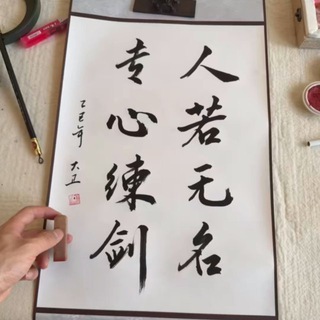 人若无名
专心练剑
乙巳年 大卫